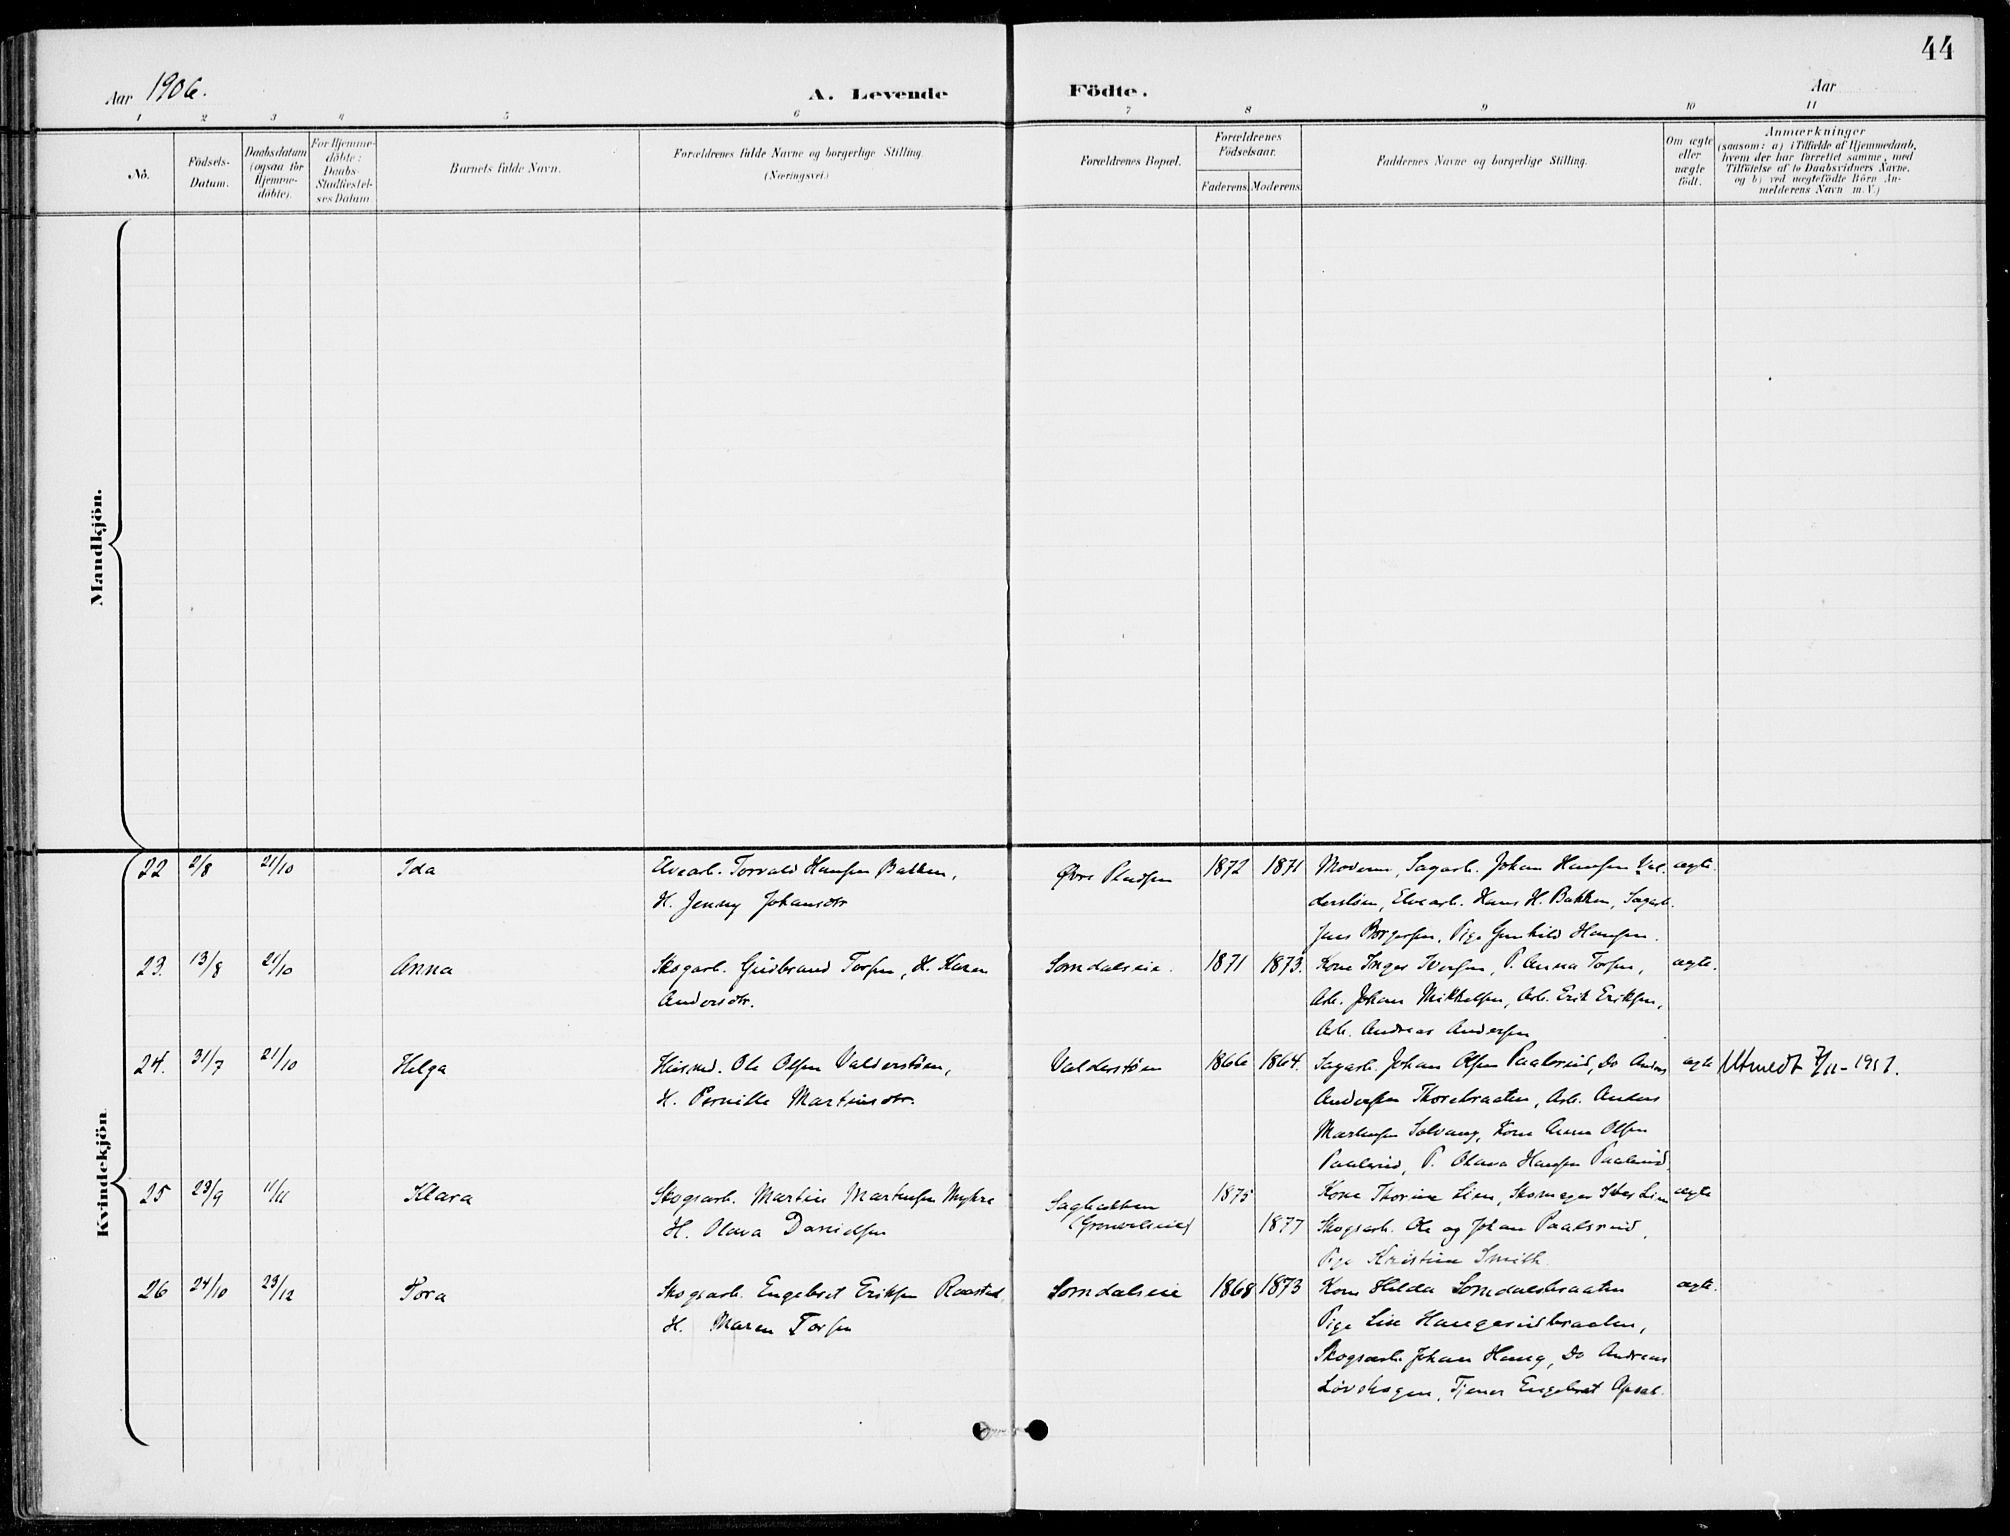 44
Aar 1906.
A. Levende Födte.
Aar
1 2 3 4 5 6 7 8 9 10 11
No.
Födsels-Datum.
Daabsdatum (ogsaa for Hjemme-döbte).
For Hjemme-döbte: Daabs-Stadfæstel-ses Datum
Barnets fulde Navn.
Forældrenes fulde Navne og borgerlige Stilling.
(Næringsvei.)
Forældrenes Bopæl.
Forældrenes Födselsaar.
Faderens. Moderens.
Faddernes Navne og borgerlige Stilling.
Om ægte eller uægte födt.
Anmærkninger
(saasom: a) i Tilfælde af Hjemmedaab,
hvem der har forrettet samme, med
Tilföielse af to Daabsvidners Navne,
og b) ved uægtefödte Börn An-
melderens Navn m. V.)
Mandkjön.
Kvindekjön.
22 2/8 21/10 Ida Elvearb. Torvald Hansen Bakken, Øvre Pladsen 1872 1871 Moderen, Sagarb. Johan Hansen Val- ægte.
H. Jenny Johansdtr derstøen, Elvearb. Hans H. Bakken, Sagarb.
Jens Borgersen, Pige Gunhild Hansen.
23. 13/8 21/10 Anna Skogarb. Gudbrand Torsen, H. Karen Somdalseie. 1871 1873. Kone Inger Iversen, P. Anna Torsen, ægte.
Andersdtr. Arb. Johan Mikkelsen, Arb. Erik Eriksen,
Arb. Andreas Andersen
24. 31/7 21/10 Helga Husmd. Ole Olsen Valderstøen, Valderstøen 1866 1864. Sagarb. Johan Olsen Paalsrud, Do Anders ægte Utmeldt 7/11-1951.
H. Pernille Martinsdtr. Andersen Thorebraaten, Arb. Anders
Martinsen Solvang, Kone Anna Olsen
Paalsrud, P. Olava Hansen Paalsrud.
25 23/9 11/11 Klara Skogsarb. Martin Martinsen Myhre Sagbakken 1875 Kone Thorine Lien, Lien ægte
H. Olava Danielsen (Gronvelseie) 1877 Skogsarb. Ole og Johan Paalsrud,
Pige Kristine Smith.
26 24/10 23/12 Tora Skogsarb. Engebret Eriksen Raastad, Somdalseie 1868 1873 Kone Hilda Somdalsbraaten ægte.
H. Maren Torsen Pige Lise Haugerudbraaten,
Skogsarb. Johan Haug, Do Andreas
Løvskogen, Tjener Engebret Opsal.